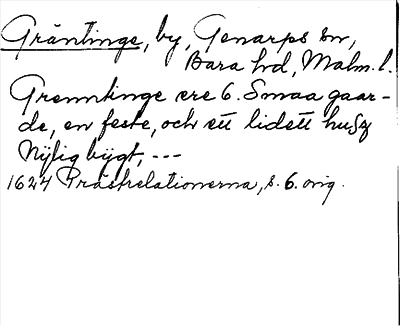 Gräntinge, by, Genarps sn,
Bara hd, Malm. l.
Grenntinge ere 6. Smaa gaar-
de, en feste, och ett lidett husz
Nÿlig bÿgt, ---
1624 Prästrelationerna, s. 6. orig.